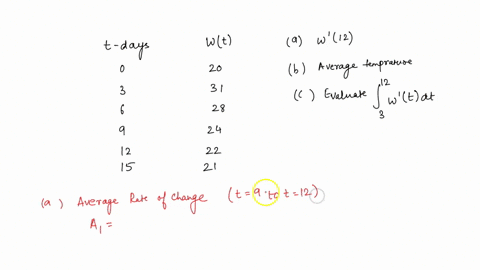 t-days W(t)
0 20
3 31
6 28
9 24
12 22
15 21
(a) W'(12)
(b) Average temprature
(c) Evaluate ∫₃¹² W'(t) dt
(a) Average Rate of Change (t = 9 to t = 12)
A₁ =